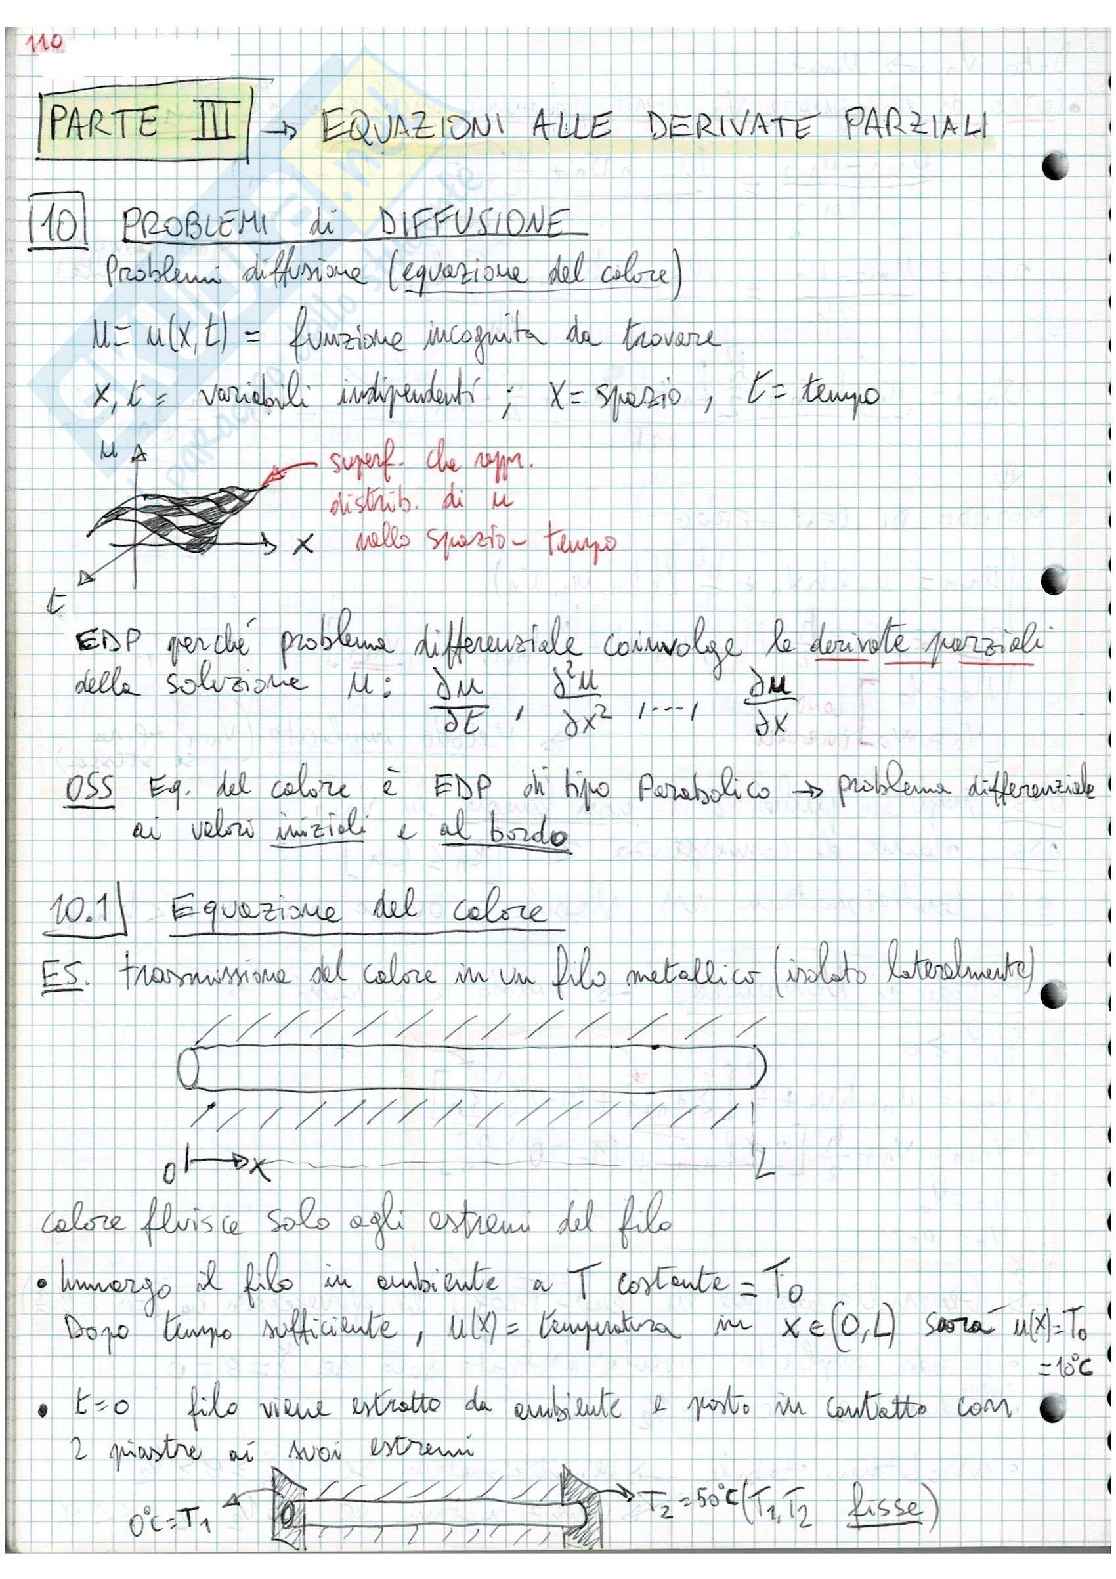 110
PARTE III → EQUAZIONI ALLE DERIVATE PARZIALI
10 PROBLEMI di DIFFUSIONE
Problemi diffusione (equazione del calore)
u = u(x,t) = funzione incognita da trovare
x, t = variabili indipendenti ; x = spazio , t = tempo
u
superf. che rappr.
distrib. di u
x nello spazio-tempo
t
EDP perché problema differenziale coinvolge le derivate parziali
della soluzione u: ∂u/∂t , ∂²u/∂x² , ..., ∂u/∂x
OSS Eq. del calore è EDP di tipo Parabolico → problema differenziale
ai valori iniziali e al bordo
10.1 Equazione del calore
ES. trasmissione del calore in un filo metallico (isolato lateralmente)
0 x L
calore fluisce solo agli estremi del filo
• Immergo il filo in ambiente a T costante = T₀
Dopo tempo sufficiente , u(x) = temperatura in x ∈ (0, L) sarà u(x) = T₀
= 10°C
• t=0 filo viene estratto da ambiente e posto in contatto con
2 piastre ai suoi estremi
0°C = T₁ 0 T₂ = 50°C (T₁, T₂ fisse)